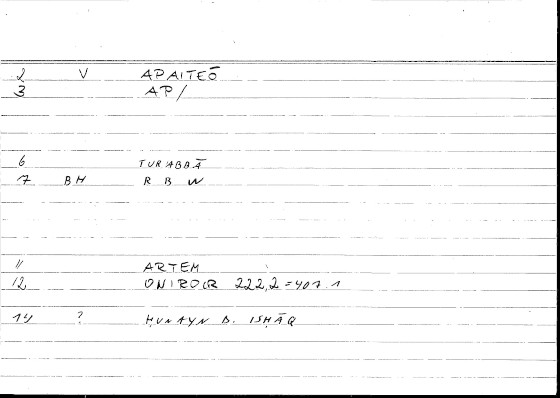 2 V APAITEŌ
3 AP/
6 TURABBĀ
7 BH R B W
11 ARTEM
12, ONIROCR 222,2 = 407.1
14 ? ḤUNAYN B. ISḤĀQ